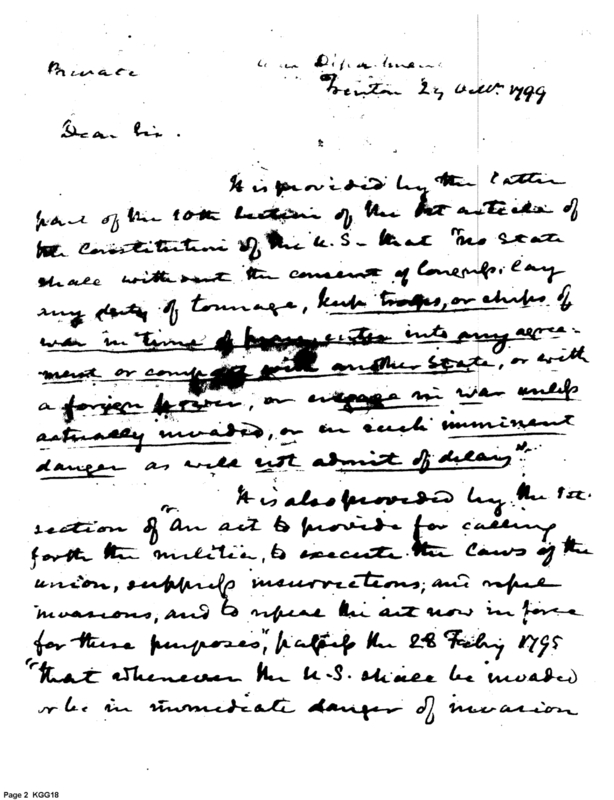 Private
War Department
Trenton 29 Octbr. 1799
Dear Sir.
It is provided by the latter
part of the 10th section of the 1st article of
the Constitution of the U.S. that "no State
shall without the consent of Congress, lay
any duty of tonnage, keep troops, or ships of
war in time of peace, enter into any agree-
ment or compact with another State, or with
a foreign power, or engage in war unless
actually invaded, or in such imminent
danger as will not admit of delay".
It is also provided by the 1st.
section of "An act to provide for calling
forth the militia, to execute the laws of the
union, suppress insurrections, and repel
invasions, and to repeal the act now in force
for these purposes", passed the 28 Feby 1795
"that whenever the U.S. shall be invaded
or be in immediate danger of invasion
Page 2 KGG18